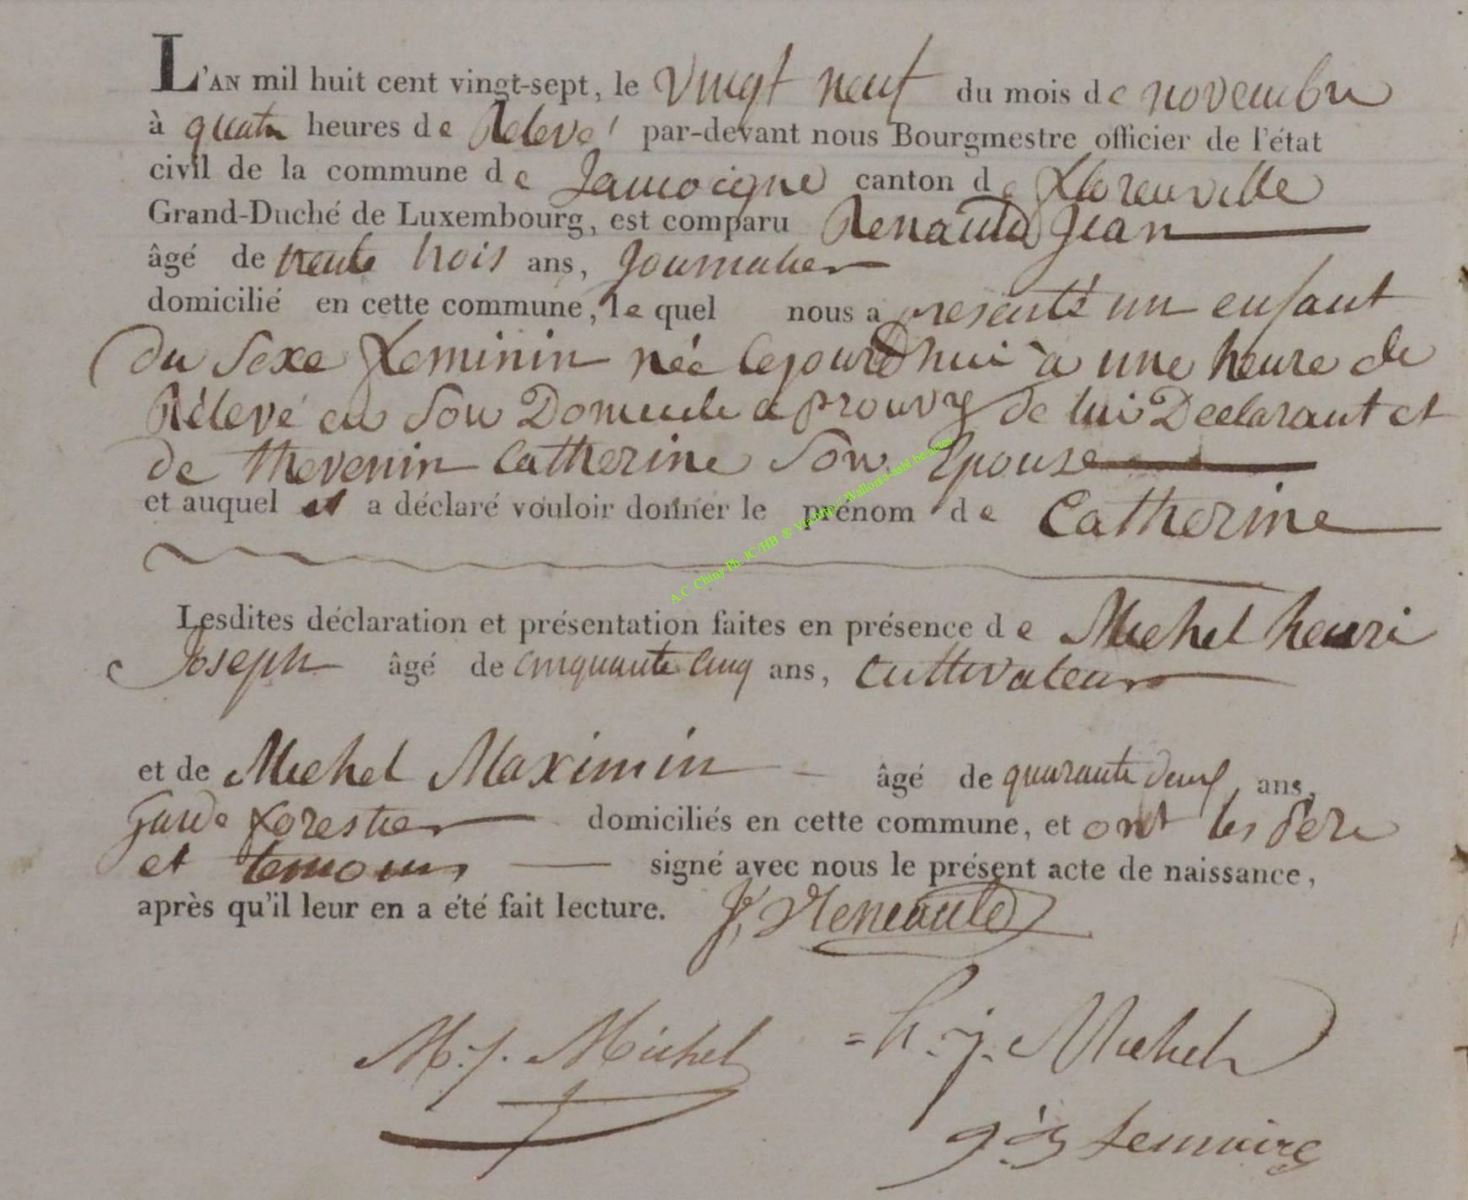 L'AN mil huit cent vingt-sept, le vingt neuf du mois de novembre
à quatre heures de Relevé par-devant nous Bourgmestre officier de l'état
civil de la commune de Jamoigne canton de florenville
Grand-Duché de Luxembourg, est comparu Renauld Jean
âgé de trente trois ans, Journalier
domicilié en cette commune, le quel nous a presenté un enfant
du Sexe feminin née cejourdhui à une heure de
Rélevé en Son Domicile a prouvy de lui Declarant et
de thevenin Catherine Son Epouse
et auquel il a déclaré vouloir donner le prénom de Catherine
Lesdites déclaration et présentation faites en présence de Michel henri
Joseph âgé de cinquante cinq ans, Cultivateur
et de Michel Maximin âgé de quarante deux ans,
garde forestier domiciliés en cette commune, et ont les Pere
et temoins signé avec nous le présent acte de naissance,
après qu'il leur en a été fait lecture. J, Reneauld
M. j. Michel = h. j. Michel
Lemaire
A.C. Chiny Ph. JC/HB